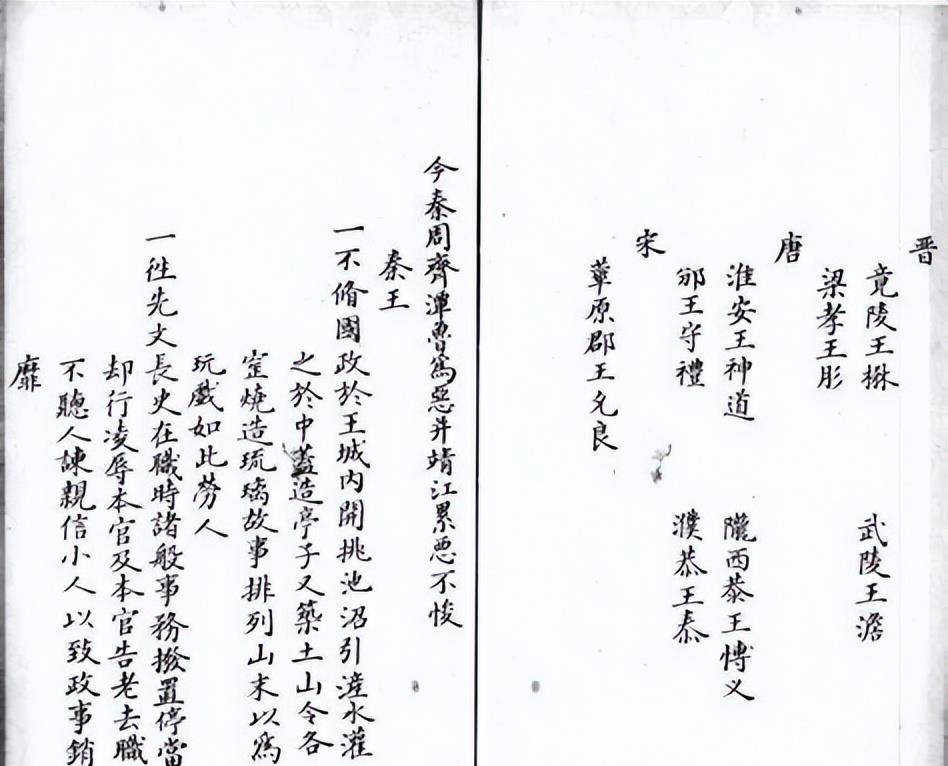 晋
竟陵王楙 武陵王澹
梁孝王肜
唐
淮安王神道 隴西恭王博义
邠王守禮 濮恭王泰
宋
華原郡王允良
今秦周齊潭魯為惡并靖江累惡不悛
秦王
一不脩國政於王城內開挑池沼引滻水灌
之於中蓋造亭子又築土山令各
窑燒造琉璃故事排列山末以為
玩戲如此勞人
一徃先文長史在職時諸般事務撥置停當
却行凌辱本官及本官告老去職
不聽人諫親信小人以致政事銷
靡